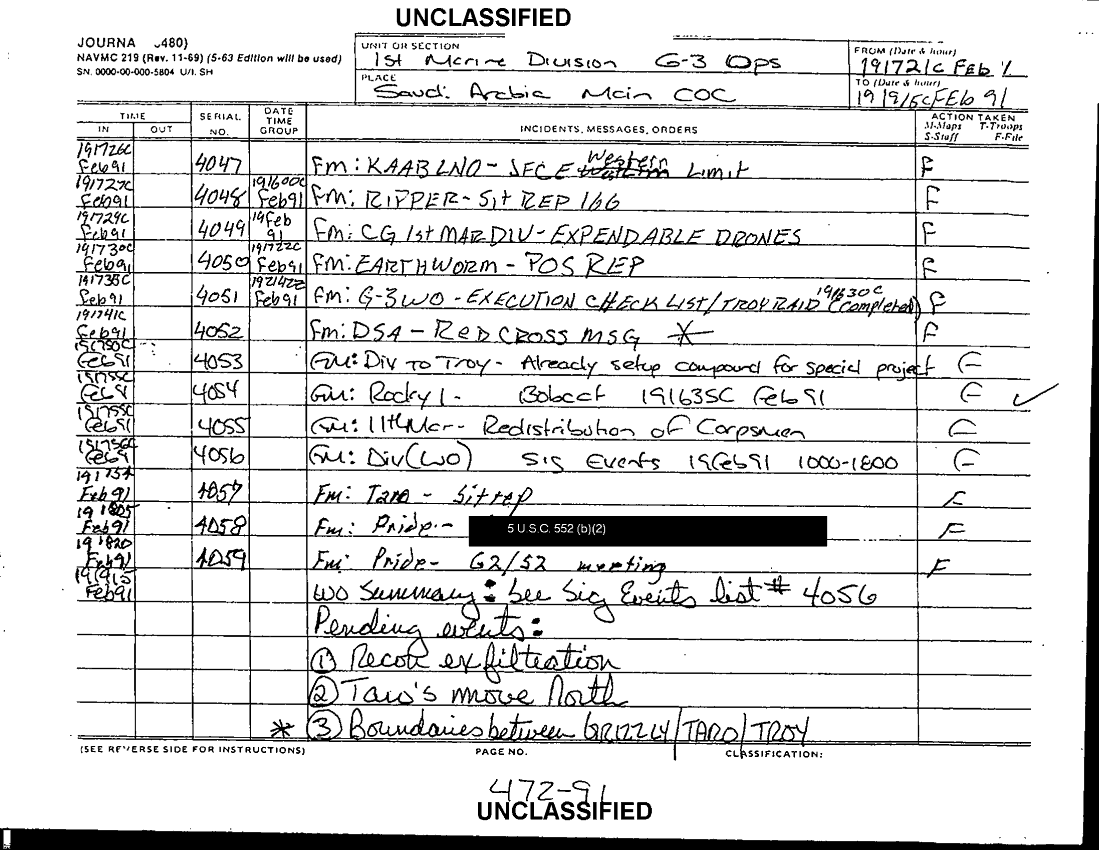 UNCLASSIFIED
JOURNA 480)
NAVMC 219 (Rev. 11-69) (5-63 Edition will be used)
SN. 0000-00-000-5804 U/I. SH
UNIT OR SECTION
1st Marine Division G-3 Ops
PLACE
Saudi Arabia Main COC
FROM (Date & hour)
191721C Feb
TO (Date & hour)
191915C FEb 91
TIME
IN OUT
SERIAL NO.
DATE TIME GROUP
INCIDENTS, MESSAGES, ORDERS
ACTION TAKEN
M-Maps T-Troops
S-Staff F-File
191726C Feb91 4047 Fm: KAAB LNO - JFCE Western Limit F
191727C Feb91 4048 191600C Feb91 Fm: RIPPER - Sit REP 166 F
191729C Feb91 4049 19Feb 91 Fm: CG 1st MAR DIV - EXPENDABLE DRONES F
191730C Feb91 4050 191722C Feb91 Fm: EARTHWORM - POS REP F
191735C Feb91 4051 192142Z Feb91 Fm: G-3 WO - EXECUTION CHECK LIST/TROY RAID 191630C (Completed) F
191741C Feb91 4052 Fm: DSA - RED CROSS MSG * F
191750C Feb91 4053 Fm: Div to Troy - Already setup compound for special project F
191755C Feb91 4054 Fm: Rocky 1 - Bobcat 191635C Feb91 F ✓
191755C Feb91 4055 Fm: 11thMar - Redistribution of Corpsmen F
191756C Feb91 4056 Fm: Div (WO) Sig Events 19Feb91 1000-1800 F
191757 Feb 91 4057 Fm: Taro - Sitrep F
191805 Feb91 4058 Fm: Pride - 5 U.S.C. 552 (b)(2) F
191820 Feb91 4059 Fm: Pride - G2/S2 meeting F
191915 Feb91 WO Summary: See Sig Events list # 4056
Pending events:
① Recon exfiltration
② Taro's move North
* ③ Boundaries between GRIZZLY/TARO/TROY
(SEE REVERSE SIDE FOR INSTRUCTIONS) PAGE NO. CLASSIFICATION:
472-91
UNCLASSIFIED